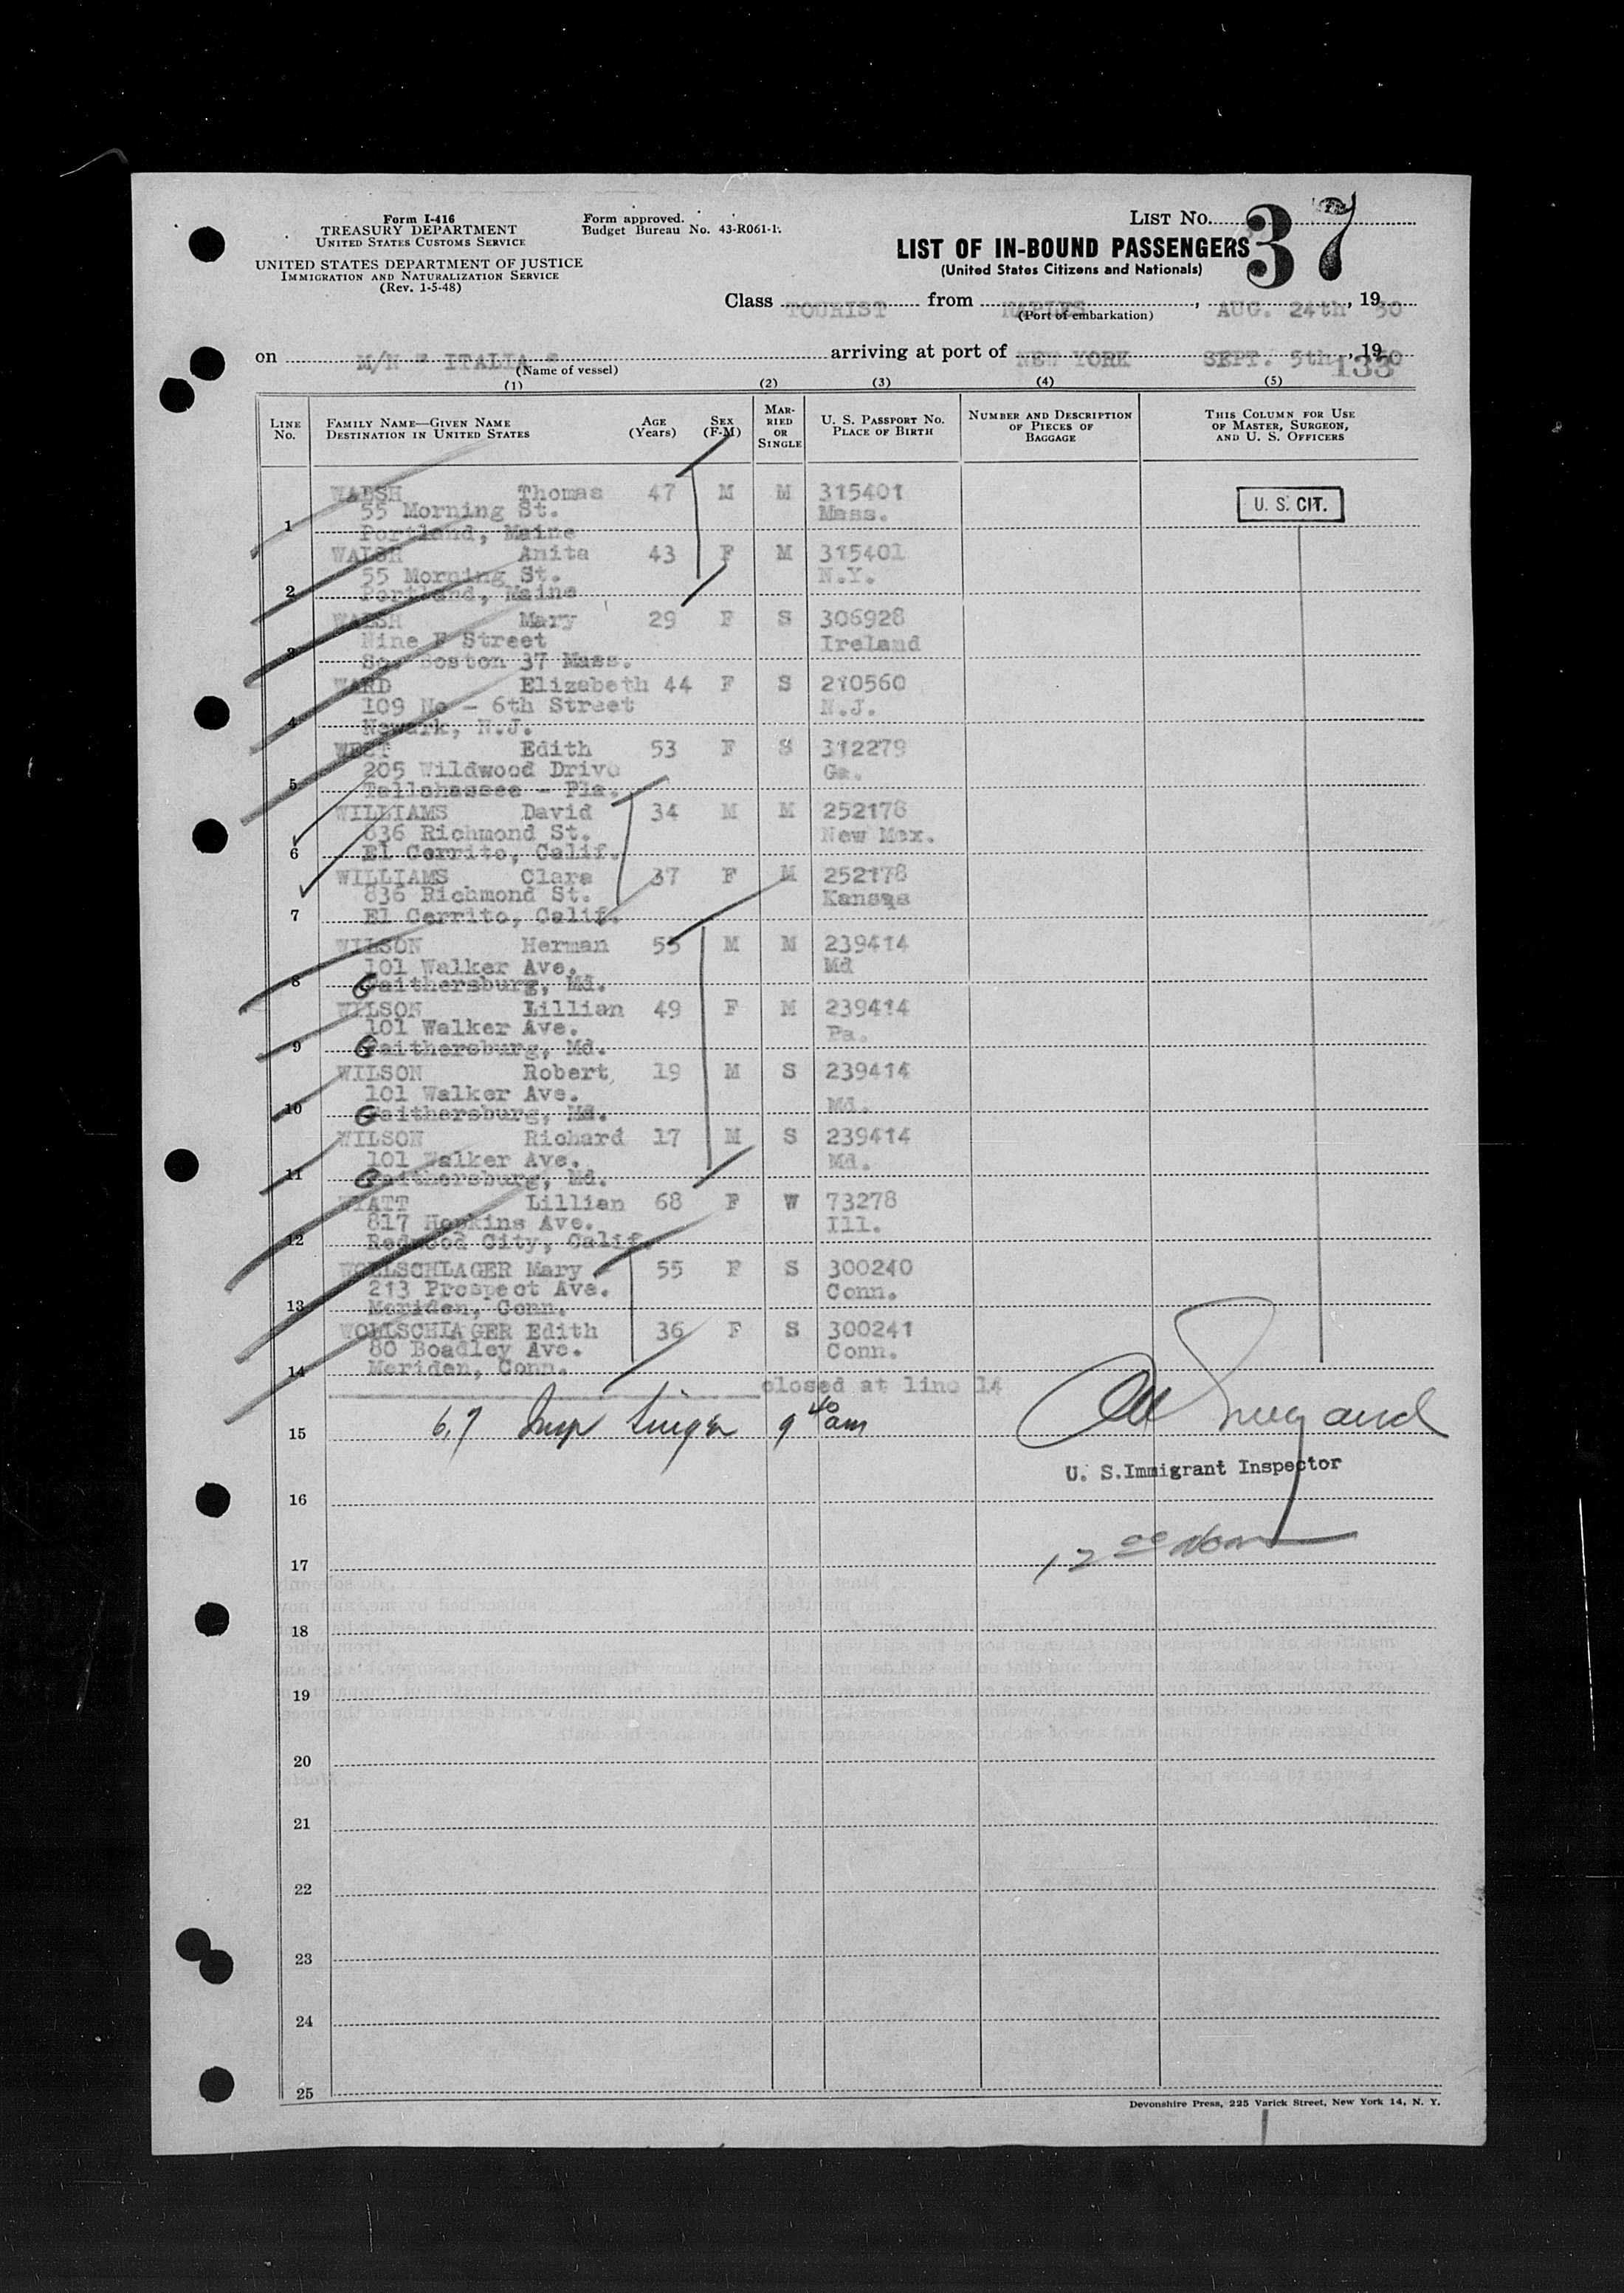 Form I-416
TREASURY DEPARTMENT
UNITED STATES CUSTOMS SERVICE
UNITED STATES DEPARTMENT OF JUSTICE
IMMIGRATION AND NATURALIZATION SERVICE
(Rev. 1-5-48)
Form approved.
Budget Bureau No. 43-R061-1.
LIST NO. 37
LIST OF IN-BOUND PASSENGERS
(United States Citizens and Nationals)
Class TOURIST from NAPLES, AUG. 24th, 1950
(Port of embarkation)
on M/N " ITALIA " arriving at port of NEW YORK SEPT. 5th, 1950
(Name of vessel)
133
(1) (2) (3) (4) (5)
LINE NO. FAMILY NAME—GIVEN NAME DESTINATION IN UNITED STATES AGE (Years) SEX (F-M) MARRIED OR SINGLE U. S. PASSPORT NO. PLACE OF BIRTH NUMBER AND DESCRIPTION OF PIECES OF BAGGAGE THIS COLUMN FOR USE OF MASTER, SURGEON, AND U. S. OFFICERS
WALSH Thomas 47 M M 315401
55 Morning St. Mass.
1 Portland, Maine
U. S. CIT.
WALSH Anita 43 F M 315401
55 Morning St. N.Y.
2 Portland, Maine
WALSH Mary 29 F S 306928
Nine F Street Ireland
3 So. Boston 37 Mass.
WARD Elizabeth 44 F S 210560
109 No - 6th Street N.J.
4 Newark, N.J.
WEST Edith 53 F S 312279
205 Wildwood Drive Ga.
5 Tallahassee - Fla.
WILLIAMS David 34 M M 252178
836 Richmond St. New Mex.
6 El Cerrito, Calif.
WILLIAMS Clara 37 F M 252178
836 Richmond St. Kansas
7 El Cerrito, Calif.
WILSON Herman 55 M M 239414
101 Walker Ave. Md
8 Gaithersburg, Md.
WILSON Lillian 49 F M 239414
101 Walker Ave. Pa.
9 Gaithersburg, Md.
WILSON Robert 19 M S 239414
101 Walker Ave. Md.
10 Gaithersburg, Md.
WILSON Richard 17 M S 239414
101 Walker Ave. Md.
11 Gaithersburg, Md.
WYATT Lillian 68 F W 73278
817 Hopkins Ave. Ill.
12 Redwood City, Calif.
WOHLSCHLAGER Mary 55 F S 300240
213 Prospect Ave. Conn.
13 Meriden, Conn.
WOHLSCHLAGER Edith 36 F S 300241
80 Boadley Ave. Conn.
14 Meriden, Conn.
closed at line 14
15 6,7 Insp 9 40 am
U. S. Immigrant Inspector
16
12 00 Noon
17
18
19
20
21
22
23
24
25
Devonshire Press, 225 Varick Street, New York 14, N. Y.